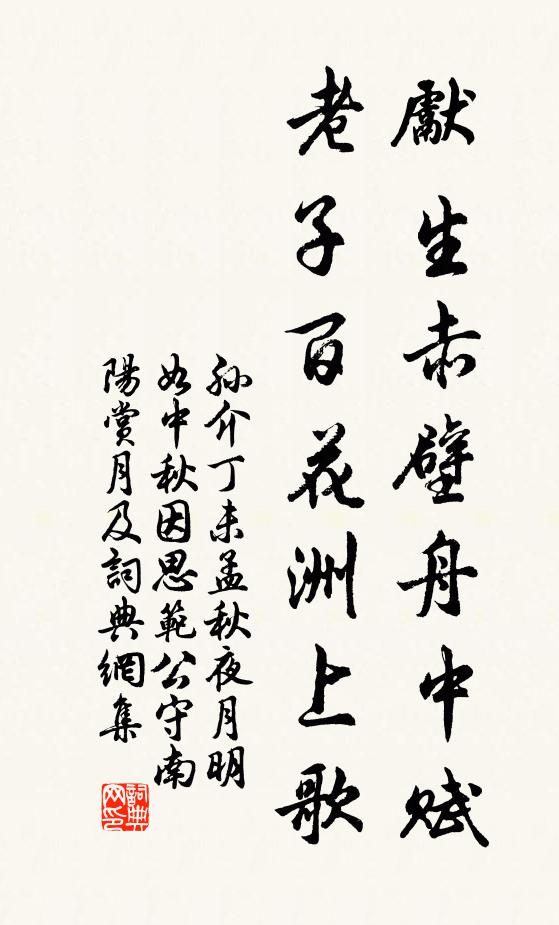 獻生赤壁舟中賦
老子百花洲上歌
孫介丁未孟秋夜月明
如中秋因思範公守南
陽賞月及詞典網集
詞典
网印